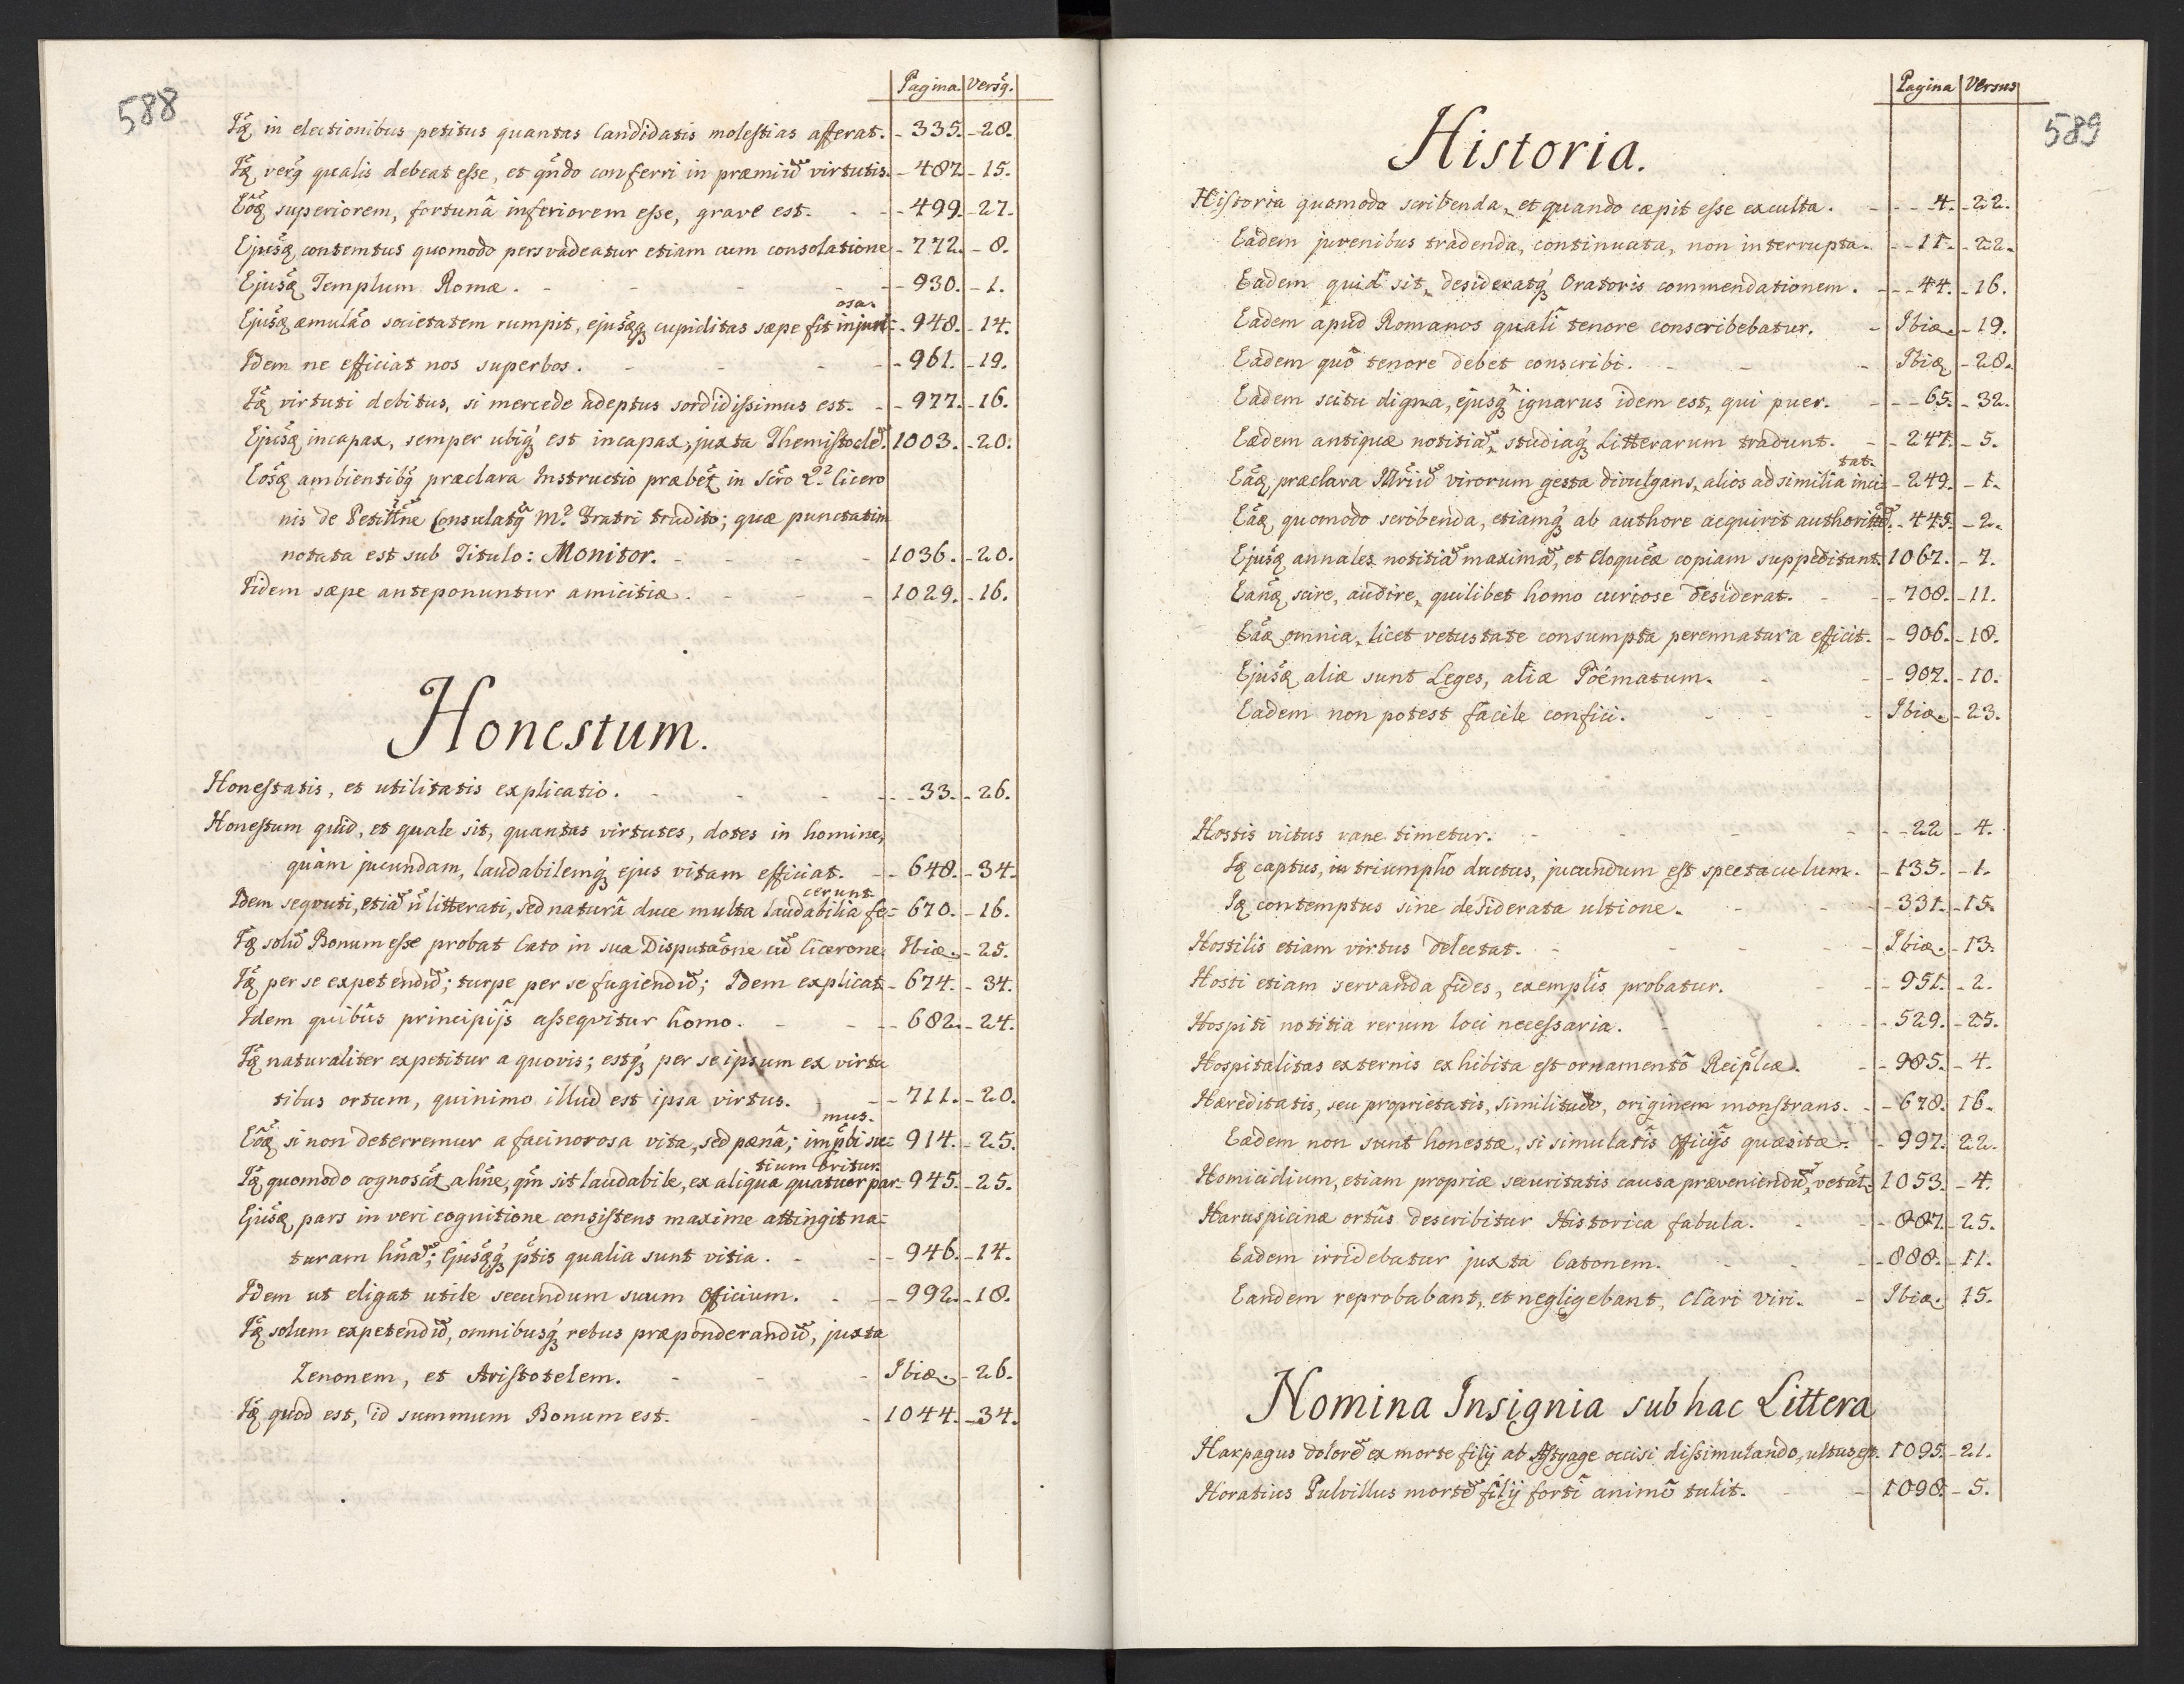 588
Pagina. Versq̃.
Iq̃ in electionibus petitus quantas Candidatis molestias afferat. - 335. - 28.
Iq̃ verq̃ qualis debeat esse, et qñdo conferri in præmiũ virtutis. - 487. - 15.
Eõq̃ superiorem, fortunâ inferiorem esse, grave est. - 499. - 27.
Ejusq̃ contemtus quomodo persvadeatur etiam cum consolatione - 772. - 8.
Ejusq̃ Templum Romæ. - 930. - 1.
osa.
Ejusq̃ æmulão societatem rumpit, ejusq̃ꝫ cupiditas sæpe fit injuri= - 948. - 14.
Idem ne efficiat nos superbos. - 961. - 19.
Iq̃ virtuti debitus, si mercede adeptus sordidissimus est. - 977. - 16.
Ejusq̃ incapax, semper ubiq́ est incapax, juxta Themistoclẽ. 1003. - 20.
Eosq̃ ambientibq̃ præclara Instructio præbet in Scrõ 2º Cicero
nis de Petitiñe Consulatq̃ M.º Fratri tradito; quæ punctatim
notata est sub Titulo: Monitor. - 1036. - 20.
Iidem sæpe anteponuntur amicitiæ. - 1029. - 16.
Honestum.
Honestatis, et utilitatis explicatio. - 33. - 26.
Honestum quid, et quale sit, quantas virtutes, dotes in homine,
quàm jucundam, laudabilemq́ꝫ ejus vitam efficiat. - 648. - 34.
cerunt
Idem seqvuti, etiã ñ litterati, sed naturâ duce multa laudabilia fe= 670. - 16.
Iq̃ solũ Bonum esse probat Cato in sua Disputãone cũ Cicerone. Ibiq̃. - 25.
Iq̃ per se expetendũ; turpe per se fugiendũ; Idem explicat - 674. - 34.
Idem quibûs principijs assequitur homo. - 682. - 24.
Iq̃ naturaliter expetitur a quovis; estq́ꝫ per se ipsum ex virtu
tibus ortum, quinimo illud est ipsa virtus. - 711. - 20.
mus.
Eõq̃ si non deterremur a facinorosa vita, sed pænâ; imp̃bi su= 914. - 25.
tium oritur.
Iq̃ quomodo cognoscãt ahñe, qm̃ sit laudabile, ex aliqua quatuor par- 945. - 25.
Ejusq̃ pars in veri cognitione consistens maxime attingit na=
turam hñã; Ejusq̃q́ꝫ p̃tis qualia sunt vitia. - 946. - 14.
Idem ut eligat utile secundum suum Officium. - 992. - 18.
Iq̃ solum expetendũ, omnibusq́ꝫ rebus præponderandũ, juxta
Zenonem, et Aristotelem. - Ibiq̃. - 26.
Iq̃ quod est, id summum Bonum est. - 1044. - 34.
589
Pagina Versus
Historia.
Historia quomodo scribenda, et quando cæpit esse exculta. - 4. - 22.
Eadem juvenibus tradenda, continuata, non interrupta. - 11. - 22.
Eadem quid sit, desideratq́ꝫ Oratoris commendationem. - 44. - 16.
Eadem apud Romanos quali tenore conscribebatur. - Ibiq̃. - 19.
Eadem quô tenore debet conscribi. - Ibiq̃ - 28.
Eadem scitu digna, ejusq́ꝫ ignarus idem est, qui puer. - 65. - 32.
Eædem antiquæ notitiã, studiaq́ꝫ Litterarum tradunt. - 247. - 5.
tat.
Eãq̃, præclara Illriũ virorum gesta divulgans, alios ad similia inci- 249. - 1.
Eãq̃, quomodo scribenda, etiamq́ꝫ ab authore acquirit authoritẽ. - 445. - 2.
Ejusq̃ annales notitiã maximã, et Eloquẽæ copiam suppeditant. 1067. - 7.
Eanq̃ scire, audire, quilibet homo curiose desiderat. - 708. - 11.
Eãq̃ omnia, licet vetustate consumpta perennatura efficit. - 906. - 18.
Ejusq̃ aliæ sunt Leges, aliæ Poématum. - 907. - 10.
Eadem non potest facile confici. - Ibiq̃. - 23.
Hostis victus vane timetur. - 22 - 4.
Iq̃ captus, in triumpho ductus, jucundum est spectaculum. - 135. - 1.
Iq̃ contemptus sine desiderata ultione. - 331. - 15.
Hostilis etiam virtus delectat. - Ibiq̃. - 13.
Hosti etiam servanda fides, exemplis probatur. - 951. - 2.
Hospiti notitia rerum loci necessaria. - 529. - 25.
Hospitalitas externis exhibita est ornamentõ Reip̃lcæ. - 985. - 4.
Hæreditatis, seu proprietatis, similitudo, originem monstrans. - 678. 16.
Eædem non sunt honestæ, si simulatîs Officijs quæsitæ. - 997. 22.
Homicidium, etiam propriæ securitatis causa præveniendũ, vetãt. 1053. - 4.
Haruspicinæ ortûs describitur Historica fabula. - 887. - 25.
Eadem irridebatur juxta Catonem. - 888. - 11.
Eandem reprobabant, et negligebant, Clari Viri. - Ibiq̃. 15.
Nomina Insignia sub hac Littera
Harpagus dolorẽ ex morte filij ab Astyage occisi dissimulando, ultus est. 1095. - 21.
Horatius Pulvillus mortẽ filij forti animô tulit. - 1098. - 5.